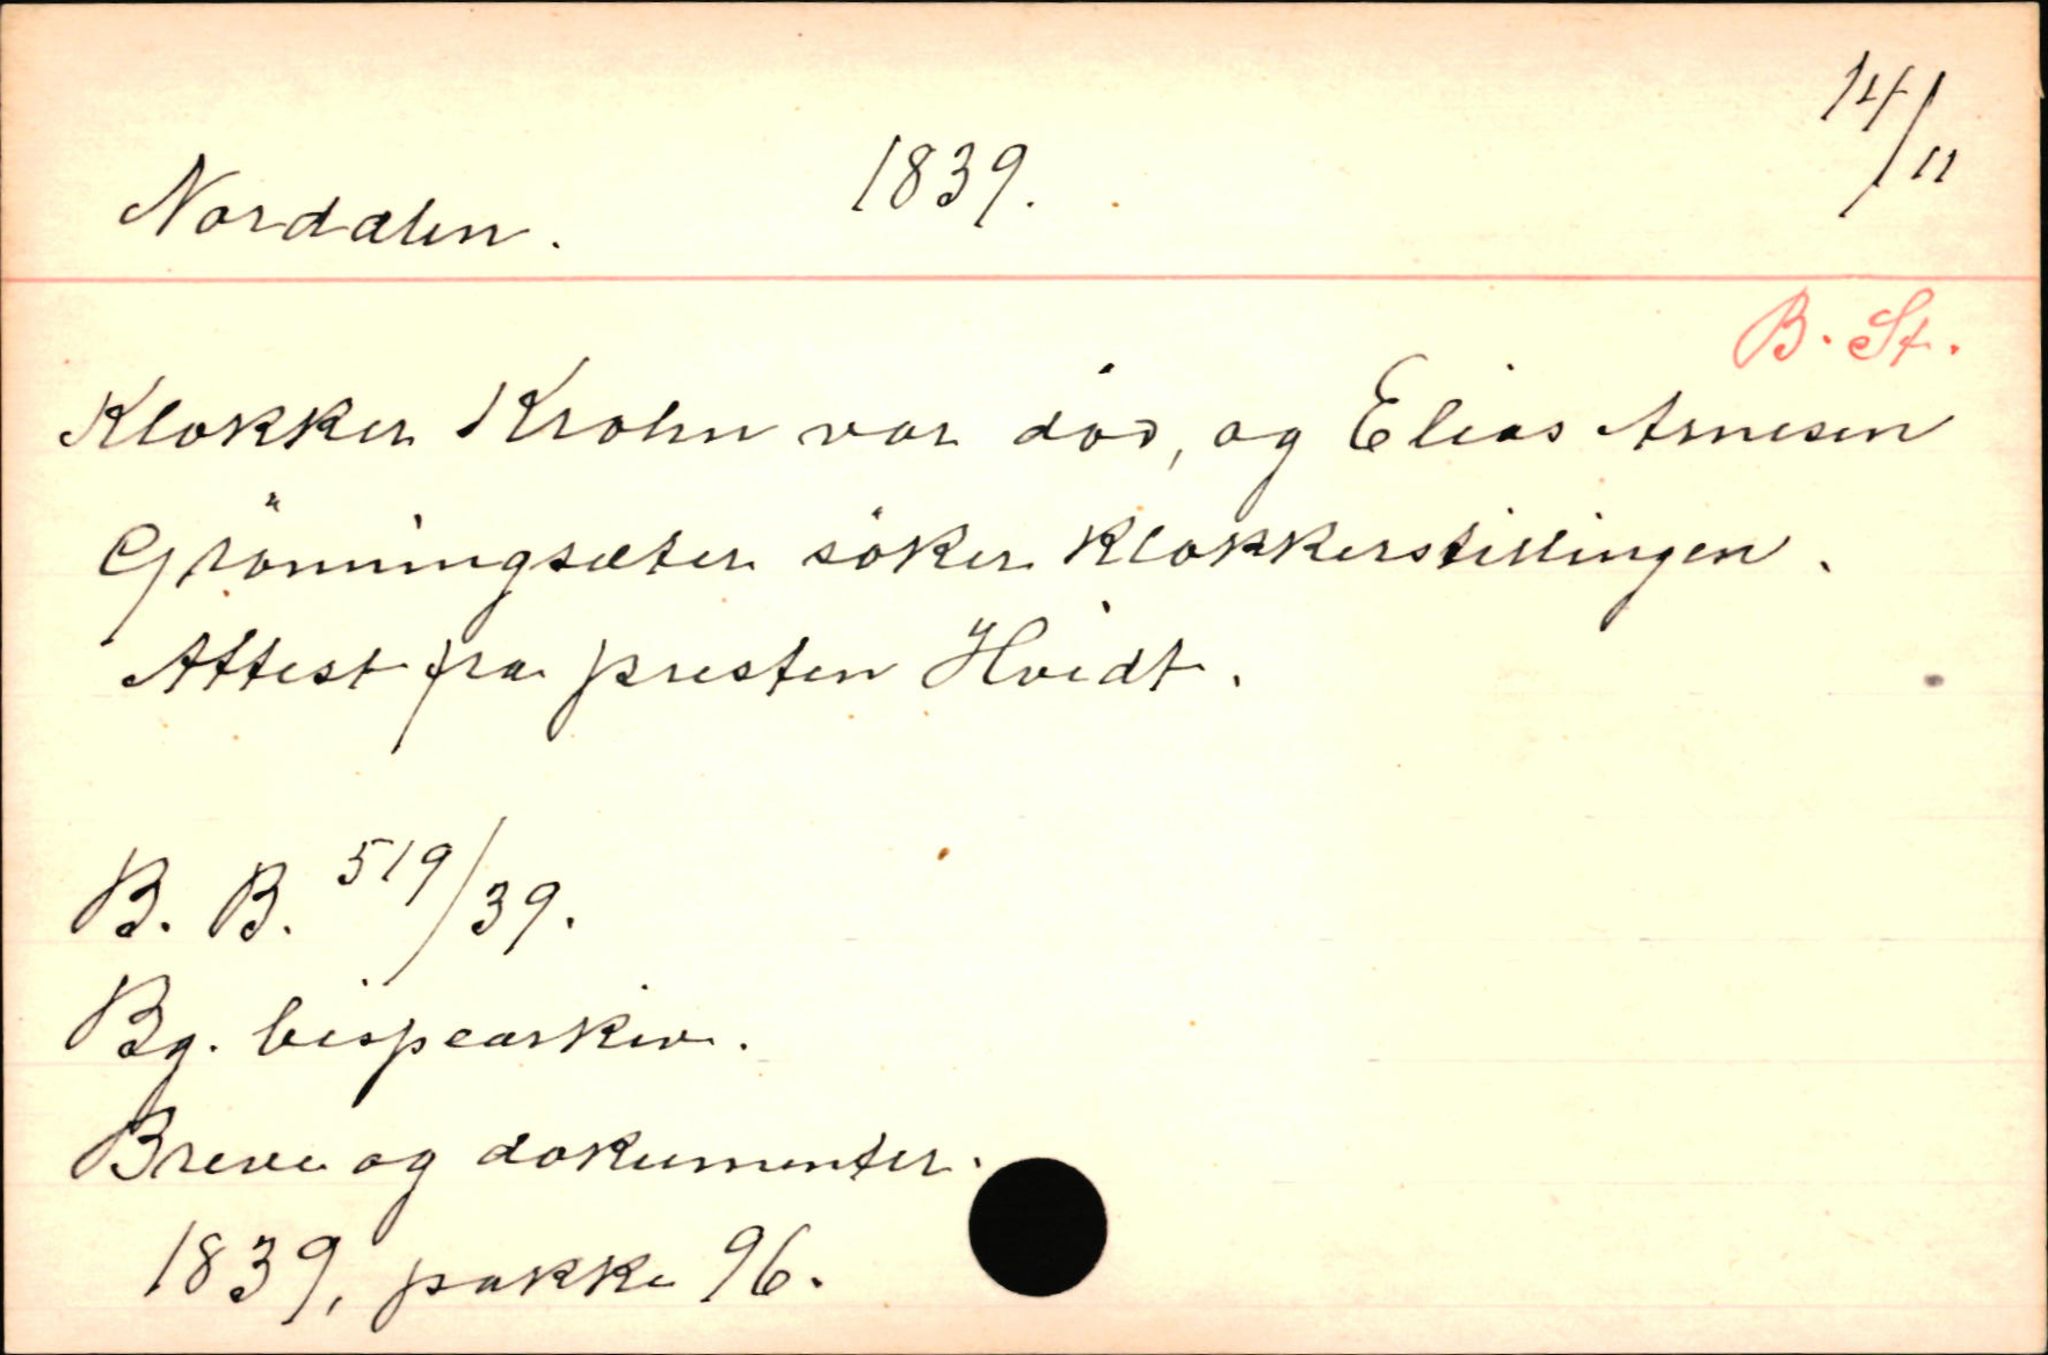 14/11
Nordalen. 1839.
B. St.
Klokker Krohn var död, og Elias Arnesen
Grönningsæter söker klokkerstillingen.
Attest fra presten Hvidt.
B. B. 519/39.
Bg. bispearkiv.
Breve og dokumenter.
1839, pakke 96.